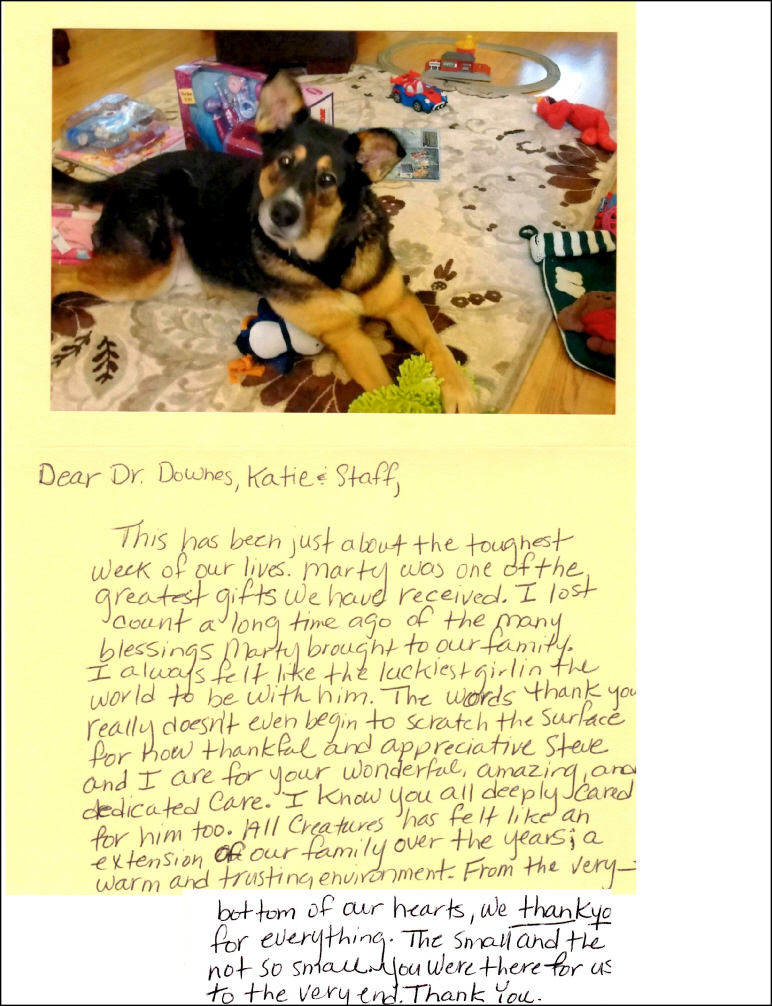 Dear Dr. Downes, Katie & Staff,
This has been just about the toughest
week of our lives. Marty was one of the
greatest gifts we have received. I lost
count a long time ago of the many
blessings Marty brought to our family.
I always felt like the luckiest girl in the
world to be with him. The words thank you
really doesn't even begin to scratch the surface
for how thankful and appreciative Steve
and I are for your wonderful, amazing, and
dedicated care. I know you all deeply cared
for him too. All Creatures has felt like an
extension of our family over the years; a
warm and trusting environment. From the very
bottom of our hearts, we thank yo
for everything. The small and the
not so small. You were there for us
to the very end. Thank You.